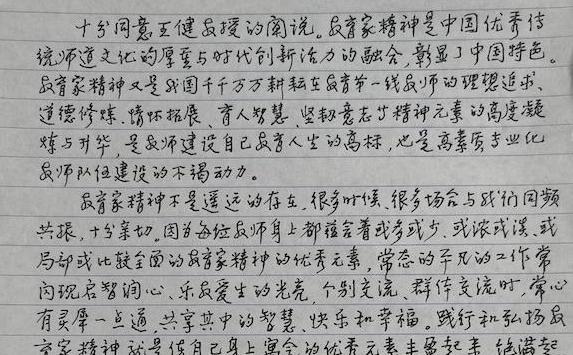 十分同意王健教授的阐说。教育家精神是中国优秀传
统师道文化的厚重与时代创新活力的融合，彰显了中国特色。
教育家精神又是我国千千万万耕耘在教育第一线教师的理想追求、
道德修炼、情怀拓展、育人智慧、坚韧意志等精神元素的高度凝
炼与升华，是教师建设自己教育人生的高标，也是高素质专业化
教师队伍建设的不竭动力。
教育家精神不是遥远的存在，很多时候、很多场合与我们同频
共振，十分亲切。因为每位教师身上都蕴含着或多或少、或浓或淡、或
局部或比较全面的教育家精神的优秀元素，常态的平凡的工作常
闪现启智润心、乐教爱生的光亮，个别交流、群体交流时，常心
有灵犀一点通，共享其中的智慧、快乐和幸福。践行和弘扬教
育家精神就是使自己身上寓含的优秀元素丰盈起来，饱满起